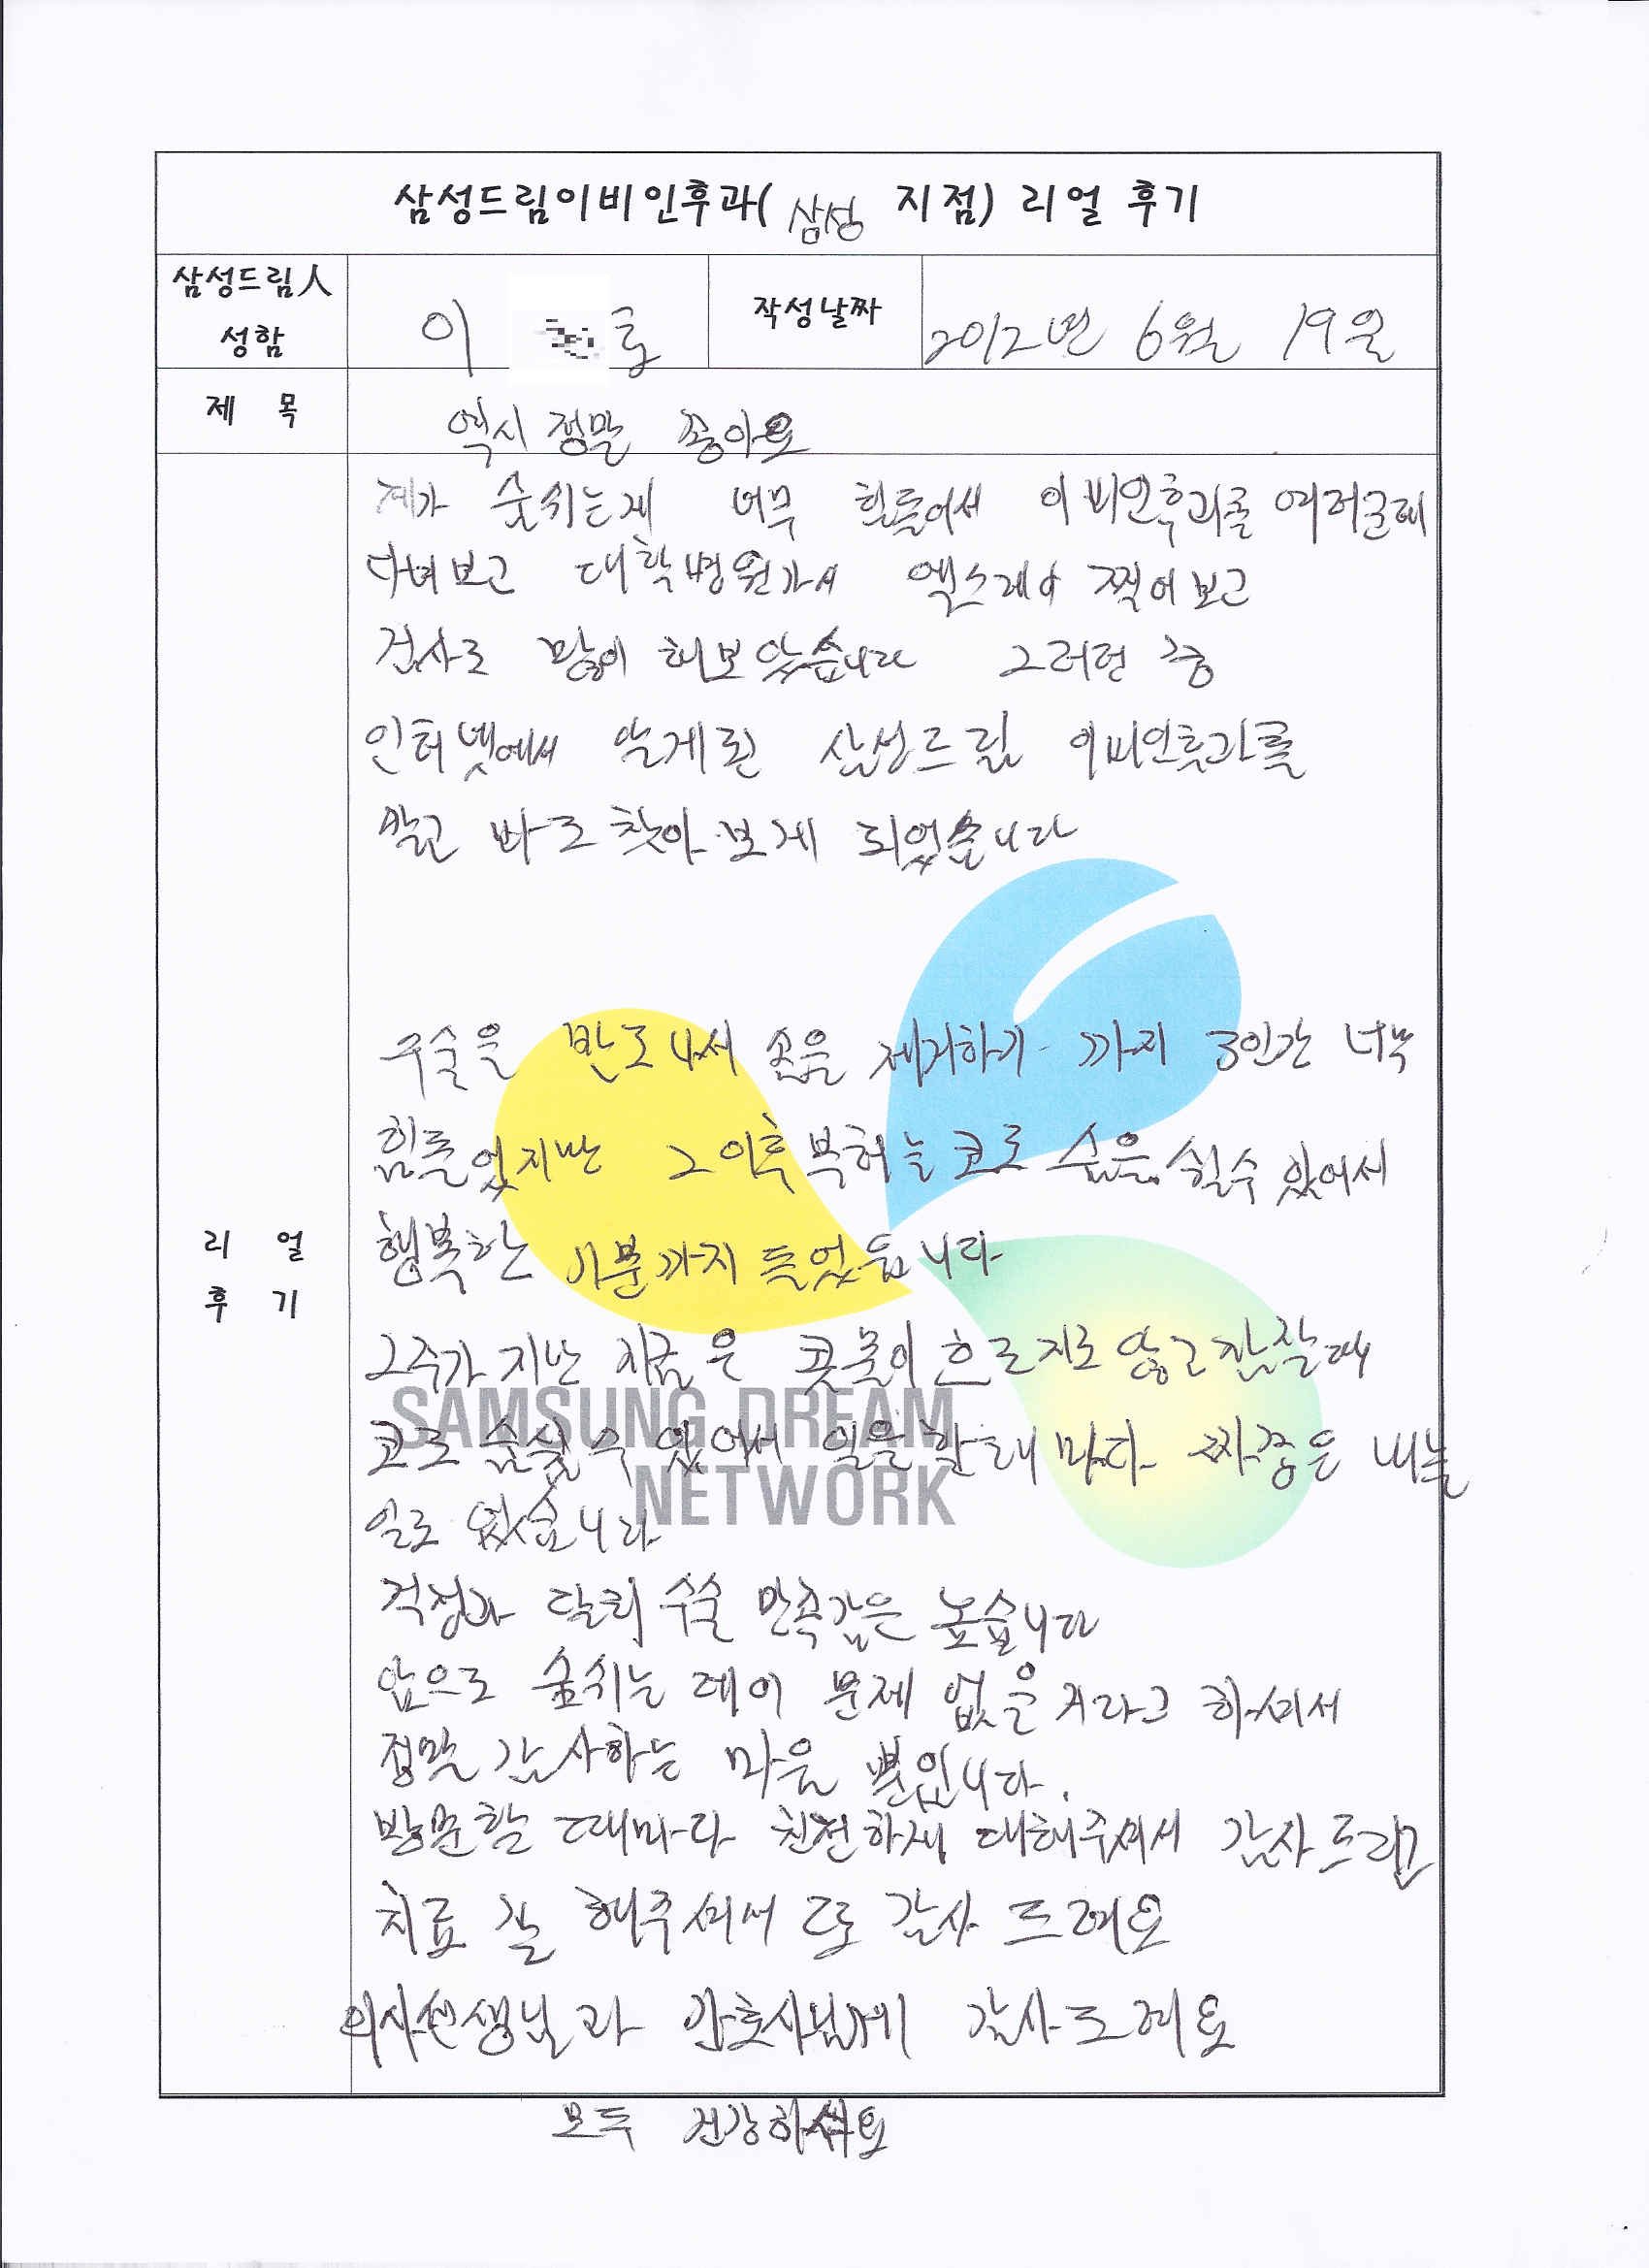 삼성드림이비인후과( 삼성 지점) 리얼 후기
삼성드림人 성함
이 호
작성날짜
2012년 6월 19일
제 목
역시 정말 좋아요
제가 숨쉬는게 너무 힘들어서 이비인후과를 여러군데
다녀보고 대학병원가서 엑스레이 찍어보고
검사도 많이 해보았습니다 그러던 중
인터넷에서 알게된 삼성드림 이비인후과를
알고 바로 찾아 보게 되었습니다
리 얼
후 기
수술을 받고 나서 솜을 제거하기 까지 3일간 너무
힘들었지만 그 이후 부터는 코로 숨을 쉴수 있어서
행복한 기분까지 들었습니다
2주가 지난 지금은 콧물이 흐르지도 않고 잠잘때
코로 숨쉴수 있어서 일을 할때 마다 짜증을 내는
일도 없습니다
걱정과 달리 수술 만족감은 높습니다
앞으로 숨쉬는 데에 문제 없을 거라고 하셔서
정말 감사하는 마음 뿐입니다.
방문할 때마다 친절하게 대해주셔서 감사드리고
치료 잘 해주셔서 또 감사 드려요
의사선생님과 간호사님께 감사드려요
모두 건강하세요
SAMSUNG DREAM
NETWORK